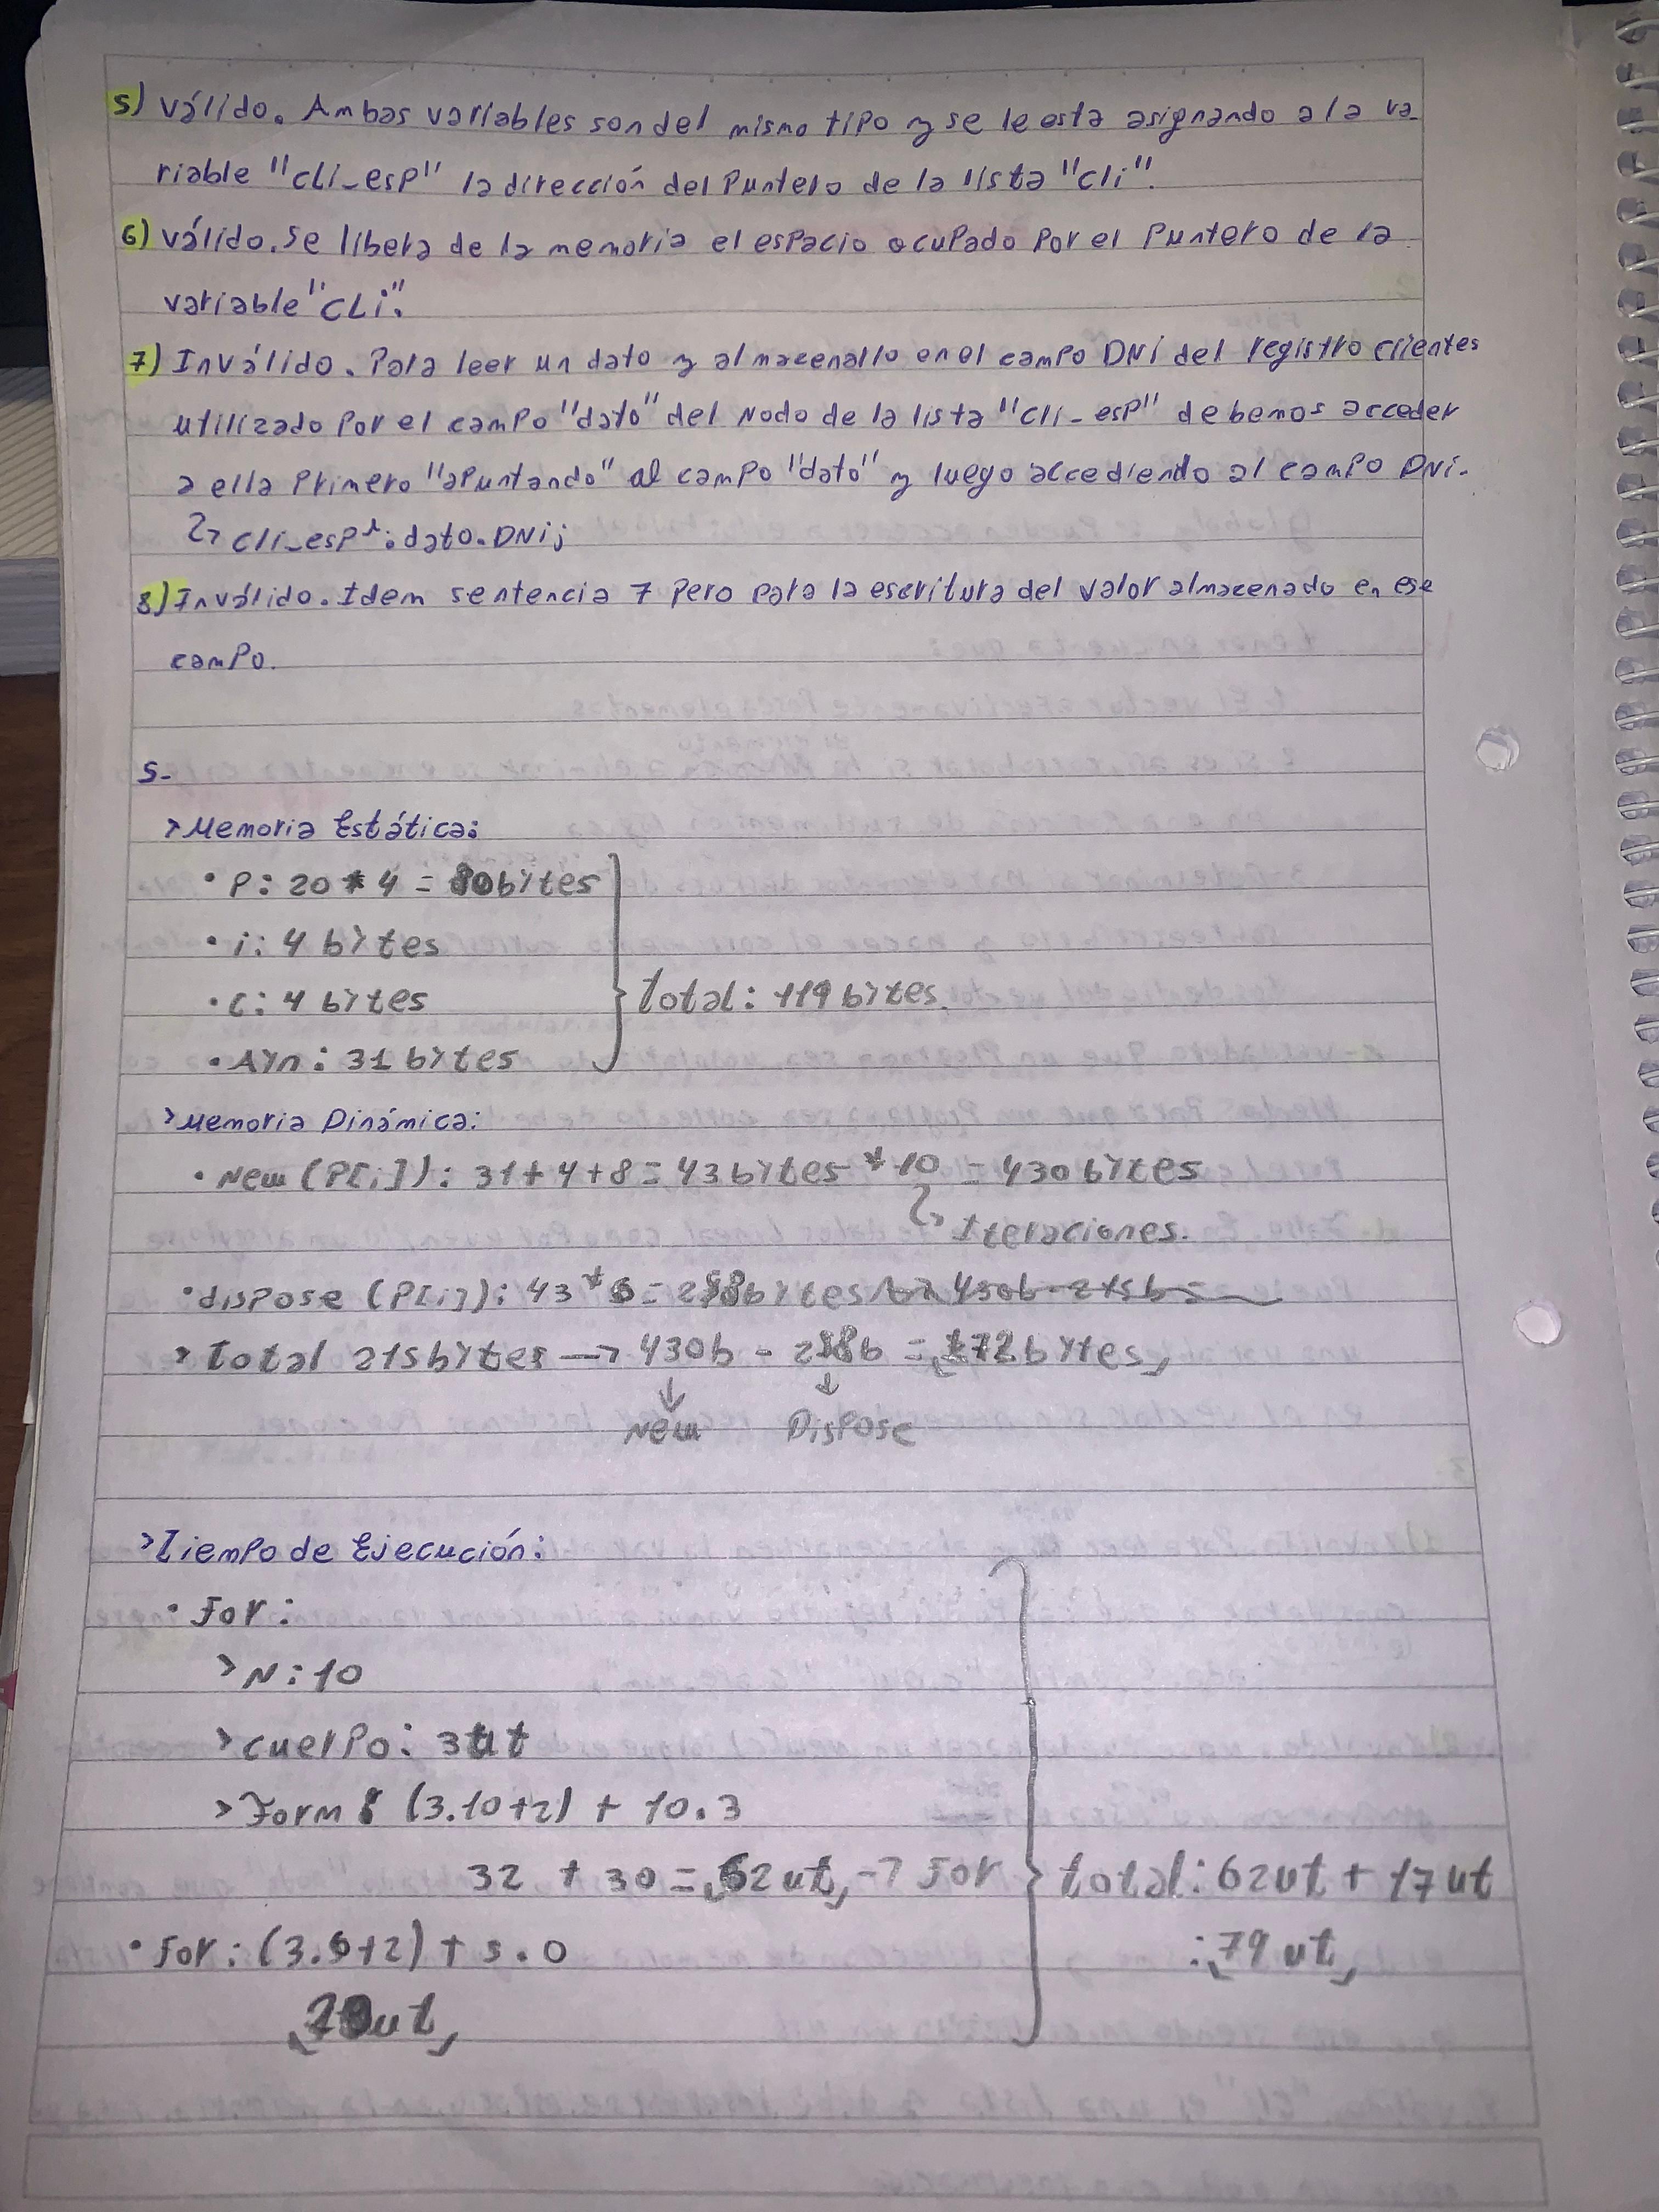 5) Válido. Ambas variables son del mismo tipo y se le esta asignando a la va_
riable "cli_esp" la dirección del Puntero de la lista "cli".
6) Válido. Se libera de la memoria el espacio ocupado por el Puntero de la
variable "CLi".
7) Inválido. Para leer un dato y almacenarlo en el campo DNI del registro clientes
utilizado por el campo "dato" del Nodo de la lista "cli_esp" debemos acceder
a ella Primero "apuntando" al campo "dato" y luego accediendo al campo DNI.
↳ cli_esp^.dato.DNI;
8) Inválido. Idem sentencia 7 pero para la escritura del valor almacenado en ese
campo.
5-
> Memoria Estática:
• P: 20 * 4 = 80 bytes
• i: 4 bytes
• C: 4 bytes
total: 119 bytes.
• Ayn: 31 bytes
> Memoria Dinámica:
• New (P[i]): 31 + 4 + 8 = 43 bytes * 10 = 430 bytes
↳ Iteraciones.
• dispose (P[i]): 43 * 6 = bytes
> Total 215 bytes → 430b - = bytes
↓ ↓
New Dispose
> Tiempo de Ejecución:
• For:
> N: 10
> cuerpo: 3ut
> Form: (3.10+2) + 10.3
32 + 30 = 62 ut → For
total: 62ut + 17ut
• For: (3.+2) + 5.0
: 79 ut
ut